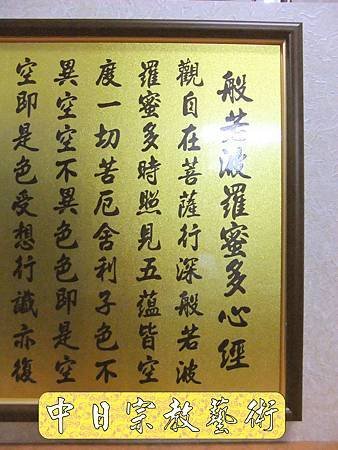 般若波羅蜜多心經
觀自在菩薩行深般若波
羅蜜多時照見五蘊皆空
度一切苦厄舍利子色不
異空空不異色色即是空
空即是色受想行識亦復
中日宗教藝術